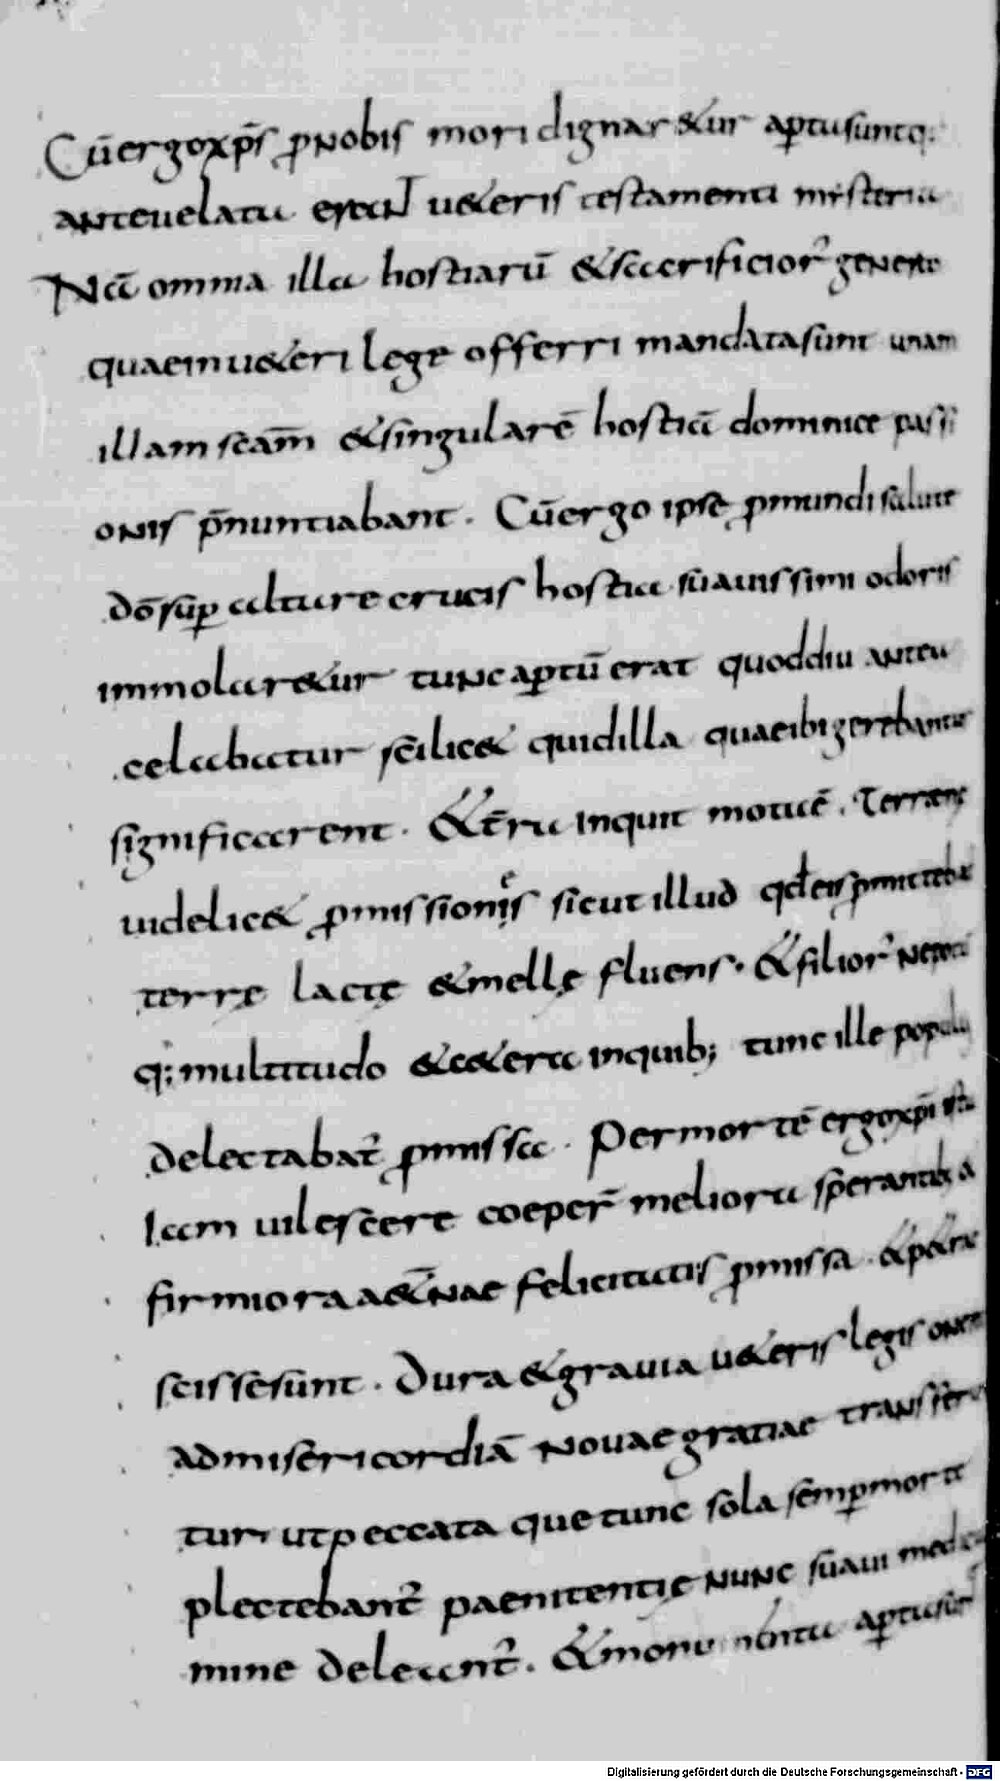 Cū ergo xp̄s ꝓ nobis mori dignar&ur aꝑta sunt q;
ante uelata erant u&eris testamenti misteria
Nā omnia illa hostiarū & sacrificior̄ genera
quae in u&eri lege offerri mandata sunt unam
illam sc̄am & singularē hostiā dominice passi
onis p̄nuntiabant. Cū ergo ipse ꝓ mundi salute
dō suꝑ altare crucis hostia suauissimi odoris
immolar&ur tunc aꝑtū erat quod diu antea
celabatur scilic& quid illa quae ibi gerebantur
significarent. & t̄ra inquit mota ē. Terrene
uidelic& ꝓmissionis sicut illud qđ eis ꝓmittebat
terrę lacte & melle fluens. & filior̄ nepotū
q; multitudo & c&era in quib; tunc ille populus
delectabat̄ ꝓmissa. Per mortē ergo xp̄i ista
iam uilescere coeper̄ meliora sperantib; a
firmiora a&̄nae felicitatis ꝓmissa. & p&rae
scissae sunt. Dura & grauia u&eris legis onera
ad misericordiā nouae gratiae transfer
tur ut peccata que tunc sola semꝑ morte
plectebant̄ paenitentię nunc suaui medica
mine deleant̄. & monumenta aꝑta sunt